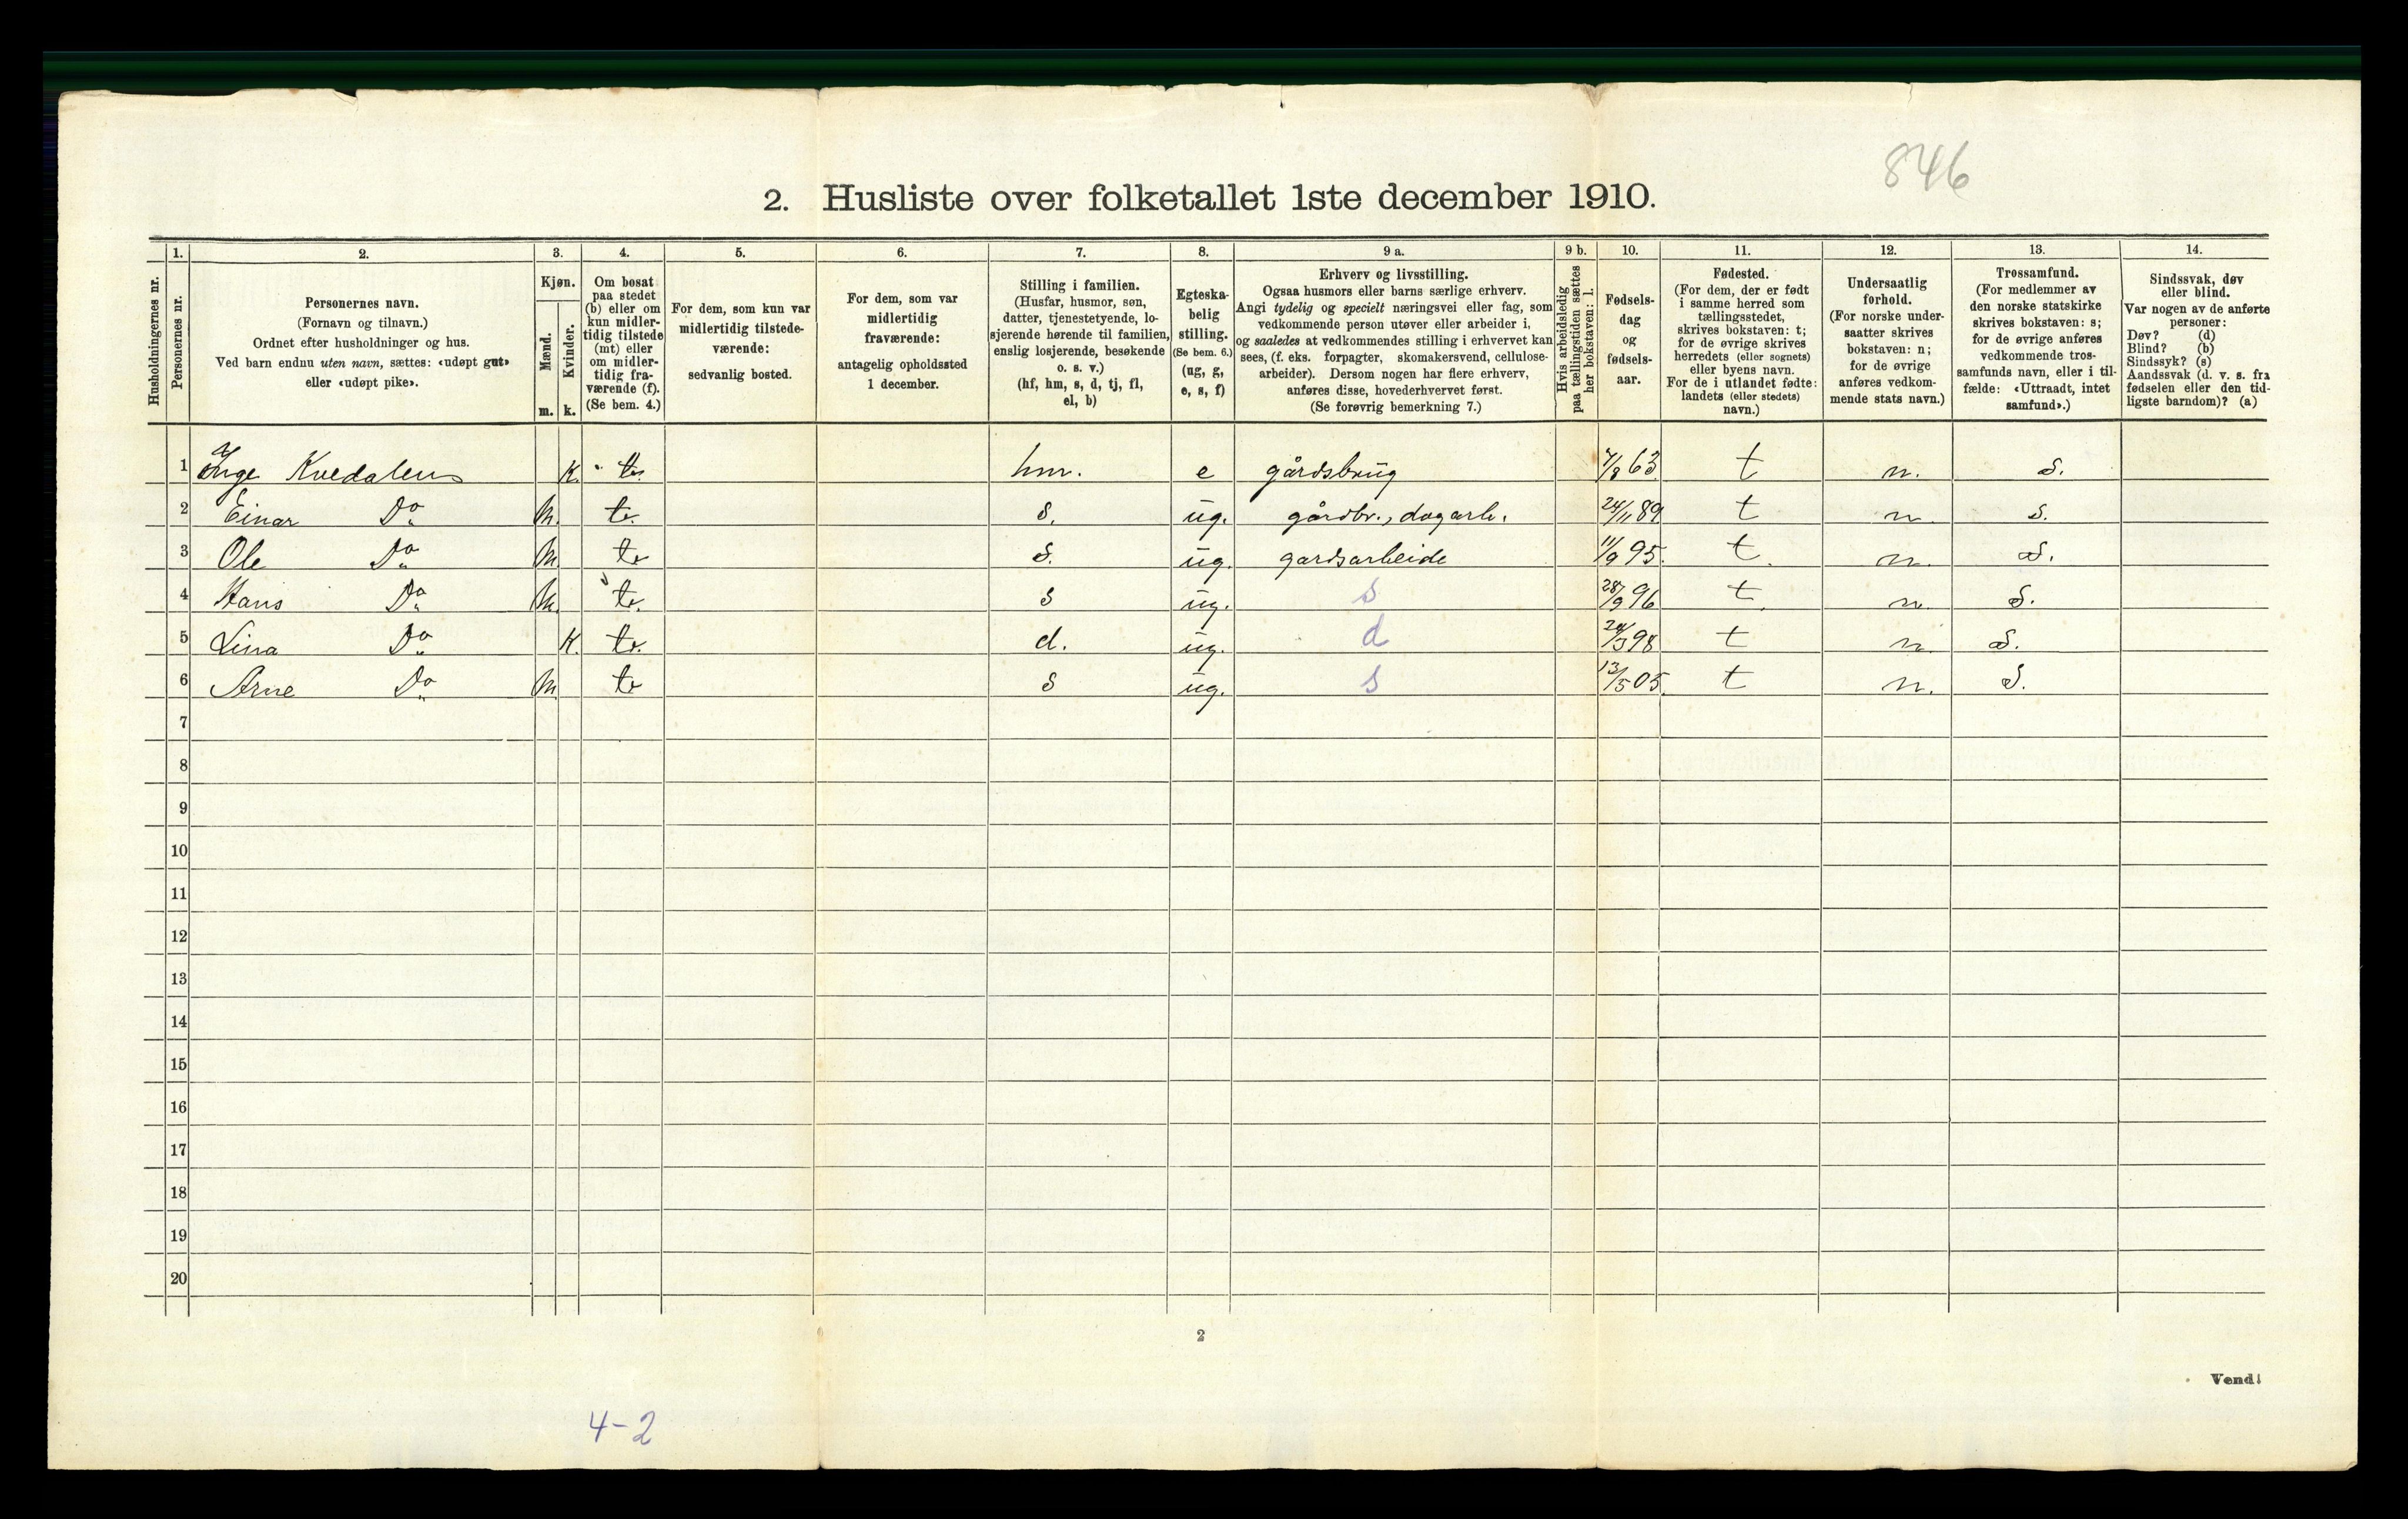 846
2. Husliste over folketallet 1ste december 1910.
Husholdningernes nr.
1.
Personernes nr.
2.
Personernes navn.
(Fornavn og tilnavn.)
Ordnet efter husholdninger og hus.
Ved barn endnu uten navn, sættes: «udøpt gut»
eller «udøpt pike».
3.
Kjøn.
Mænd.
m.
Kvinder.
k.
4.
Om bosat
paa stedet
(b) eller om
kun midler-
tidig tilstede
(mt) eller
om midler-
tidig fra-
værende (f).
(Se bem. 4.)
5.
For dem, som kun var
midlertidig tilstede-
værende:
sedvanlig bosted.
6.
For dem, som var
midlertidig
fraværende:
antagelig opholdssted
1 december.
7.
Stilling i familien.
(Husfar, husmor, søn,
datter, tjenestetyende, lo-
sjerende hørende til familien,
enslig losjerende, besøkende
o. s. v.)
(hf, hm, s, d, tj, fl,
el, b)
8.
Egteska-
belig
stilling.
(Se bem. 6.)
(ug, g,
e, s, f)
9 a.
Erhverv og livsstilling.
Ogsaa husmors eller barns særlige erhverv.
Angi tydelig og specielt næringsvei eller fag, som
vedkommende person utøver eller arbeider i,
og saaledes at vedkommendes stilling i erhvervet kan
sees, (f. eks. forpagter, skomakersvend, cellulose-
arbeider). Dersom nogen har flere erhverv,
anføres disse, hovederhvervet først.
(Se forøvrig bemerkning 7.)
9 b.
Hvis arbeidsledig
paa tællingstiden sættes
her bokstaven: l.
10.
Fødsels-
dag
og
fødsels-
aar.
11.
Fødested.
(For dem, der er født
i samme herred som
tællingsstedet,
skrives bokstaven: t;
for de øvrige skrives
herredets (eller sognets)
eller byens navn.
For de i utlandet fødte:
landets (eller stedets)
navn.)
12.
Undersaatlig
forhold.
(For norske under-
saatter skrives
bokstaven: n;
for de øvrige
anføres vedkom-
mende stats navn.)
13.
Trossamfund.
(For medlemmer av
den norske statskirke
skrives bokstaven: s;
for de øvrige anføres
vedkommende tros-
samfunds navn, eller i til-
fælde: «Uttraadt, intet
samfund».)
14.
Sindssvak, døv
eller blind.
Var nogen av de anførte
personer:
Døv? (d)
Blind? (b)
Sindssyk? (s)
Aandssvak (d. v. s. fra
fødselen eller den tid-
ligste barndom)? (a)
1 Inge Kvedalen K. hm. e gårdsbrug 7/8 63 t n. s.
2 Einar Do M. s. ug. gårdbr., dagarb. 24/11 89 t n s.
3 Ole Do M. s. ug. gardsarbeide 11/9 95. t n. S.
4 Hans Do M. s ug. s 28/9 96 t n S.
5 Lina Do K. d. ug. d 98 t n. S.
6 Arne Do M. s ug. s 13/5 05. t n. S.
7
8
9
10
11
12
13
14
15
16
17
18
19
20
2
Vend!
4-2